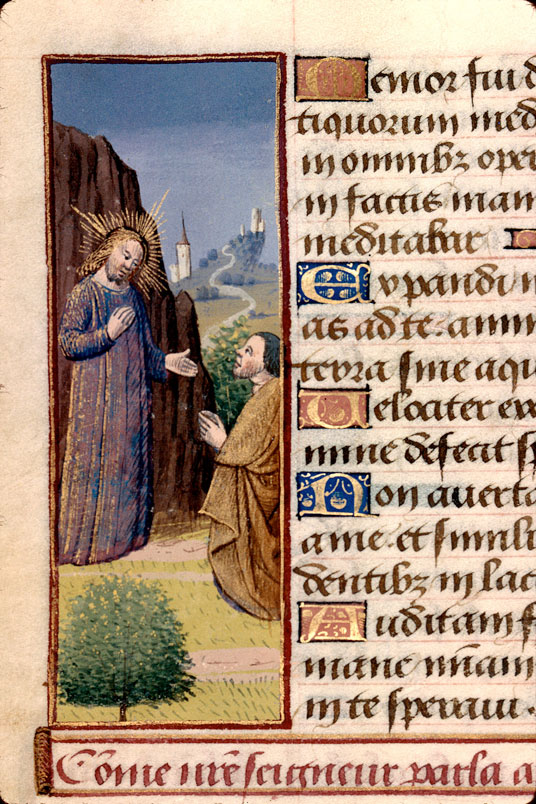 Memor fui d
tiquorum med
in omnibz oper
in factis man
meditabar
Expandi m
as ad te. anim
terra sine aqu
Velociter ex
mine defecit sp
Non auerta
a me. et simili
dentibz in lac
Auditam f
mane miãm
in te speraui.
Cõme nr̃e seigneur parla a